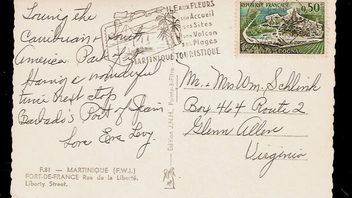 Touring the
Caribbean & South
America Part of
Having a wonderful
time next stop
Barbado's Port of Spain
Love Eva Levy.
ILE AUX FLEURS
son Accueil
ses Sites
son Volcan
ses Plages
MARTINIQUE TOURISTIQUE
REPUBLIQUE FRANÇAISE
0,50
Mr. & Mrs Wm. Schlink
Box 464 Route 2
Glenn Allen
Virginia
F.81 — MARTINIQUE (F.W.I.)
FORT-DE-FRANCE Rue de la Liberté.
Liberty Street.